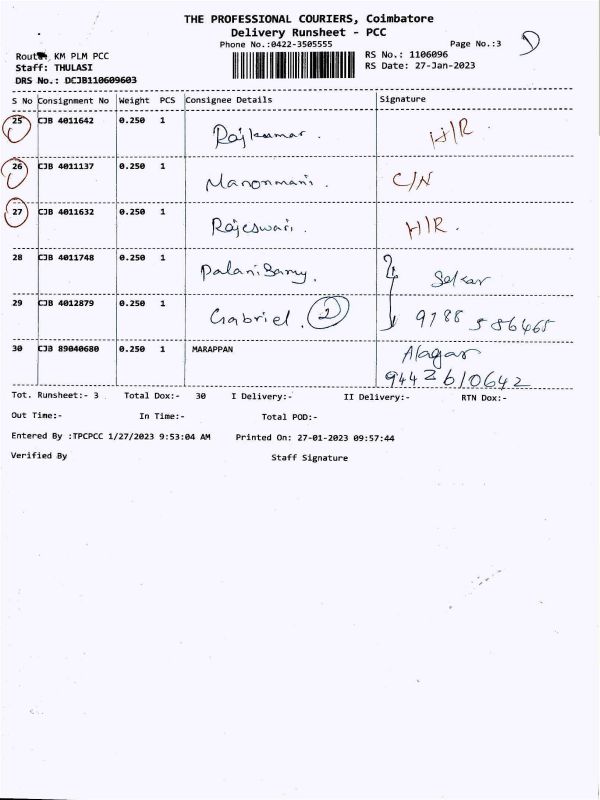 THE PROFESSIONAL COURIERS, Coimbatore
Delivery Runsheet - PCC
Phone No.:0422-3505555 Page No.:3
Route: KM PLM PCC RS No.: 1106096
Staff: THULASI RS Date: 27-Jan-2023
DRS No.: DCJB110609603
S No Consignment No Weight PCS Consignee Details Signature
25 CJB 4011642 0.250 1 Rajkumar. H/R
26 CJB 4011137 0.250 1 Manonmani. C/N
27 CJB 4011632 0.250 1 Rajeswari. H/R.
28 CJB 4011748 0.250 1 Palanisamy. Sekar
29 CJB 4012879 0.250 1 Gabriel. 2 9788 586465
30 CJB 89040680 0.250 1 MARAPPAN Alagar
9442610642
Tot. Runsheet:- 3 Total Dox:- 30 I Delivery:- II Delivery:- RTN Dox:-
Out Time:- In Time:- Total POD:-
Entered By :TPCPCC 1/27/2023 9:53:04 AM Printed On: 27-01-2023 09:57:44
Verified By Staff Signature